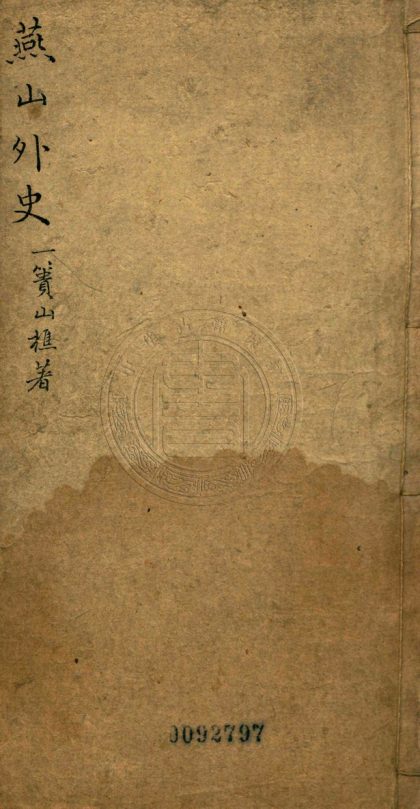 燕山外史
一簣山樵著
0092797